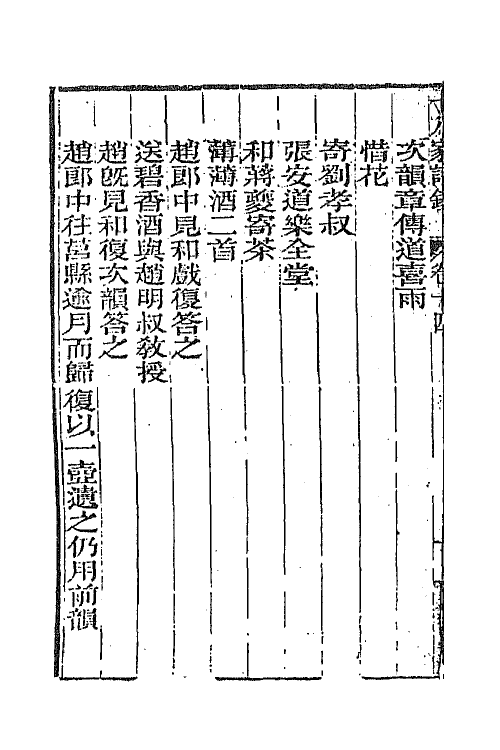 八家詩鈔 卷十四
次韻章傳道喜雨
惜花
寄劉孝叔
張安道樂全堂
和蔣夔寄茶
薄薄酒二首
趙郎中見和戲復答之
送碧香酒與趙明叔教授
趙旣見和復次韻答之
趙郎中往莒縣逾月而歸復以一壺遺之仍用前韻